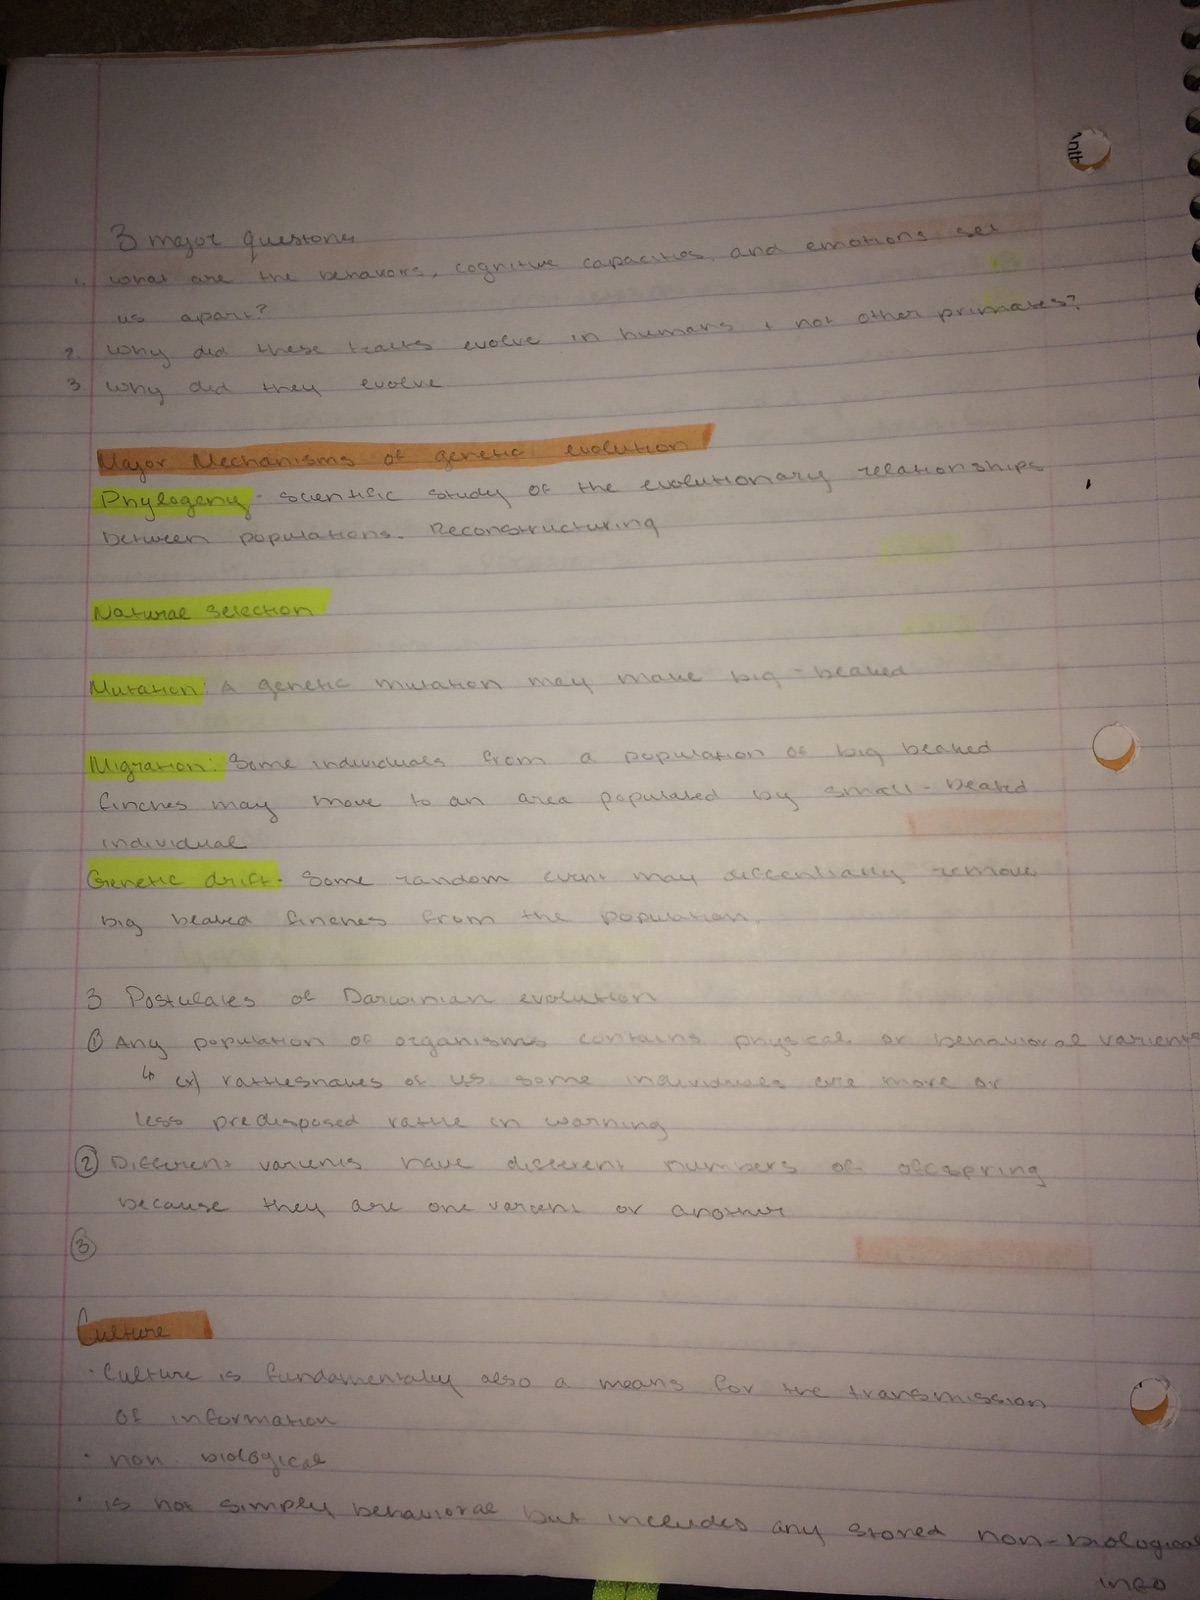 Anth
3 major questions
1. What are the behaviors, cognitive capacities, and emotions set
us apart?
2. Why did these traits evolve in humans + not other primates?
3. Why did they evolve
Major Mechanisms of genetic evolution
Phylogeny - scientific study of the evolutionary relationships
between populations. Reconstructuring
Natural selection
Mutation: A genetic mutation may make big-beaked
Migration: Some individuals from a population of big beaked
finches may move to an area populated by small-beaked
individual
Genetic drift - Some random event may differntially remove
big beaked finches from the population.
3 Postulates of Darwinian evolution
① Any population of organisms contains physical or behavioral varients
↳ ex) rattlesnakes of us some individuals are more or
less predisposed rattle in warning
② Different varients have different numbers of offspring
because they are one varient or another
③
Culture
· Culture is fundamentally also a means for the transmission
of information
· non biological
· is not simply behavioral but includes any stored non-biological
info